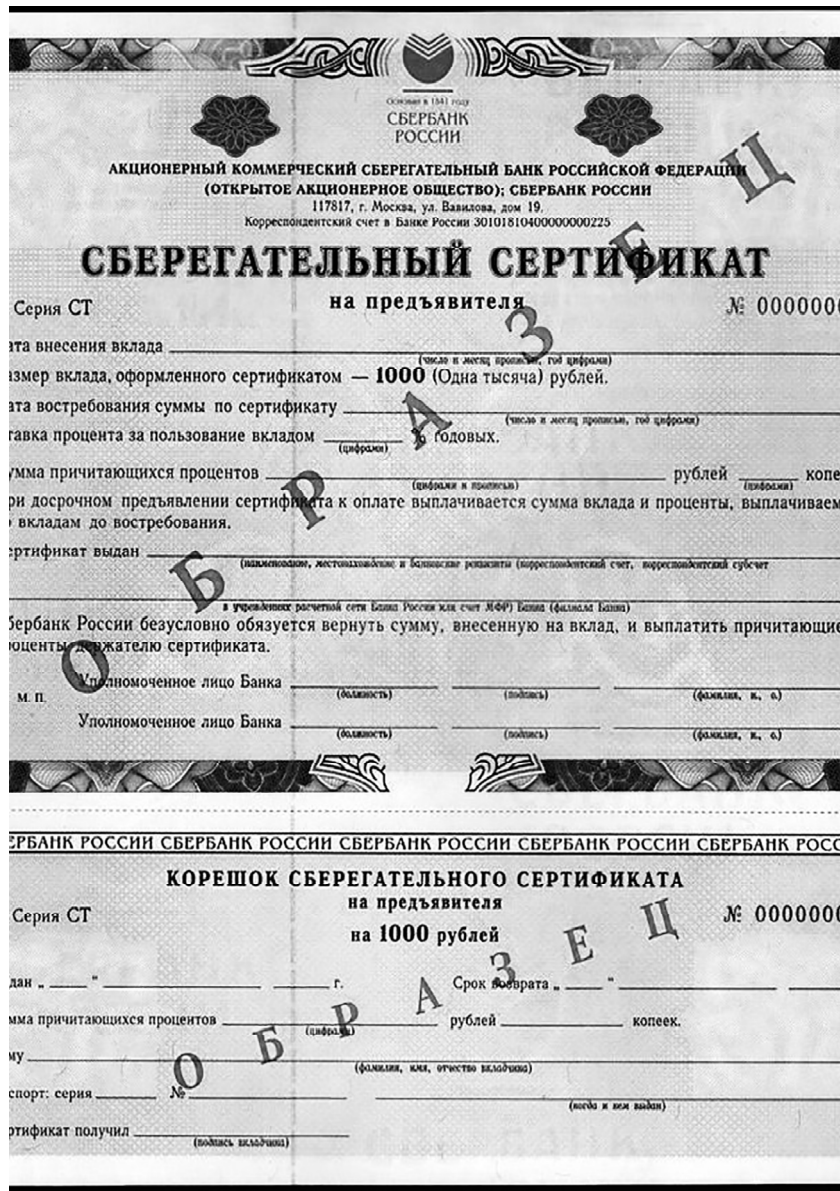 Основан в 1841 году
СБЕРБАНК
РОССИИ
АКЦИОНЕРНЫЙ КОММЕРЧЕСКИЙ СБЕРЕГАТЕЛЬНЫЙ БАНК РОССИЙСКОЙ ФЕДЕРАЦИИ
(ОТКРЫТОЕ АКЦИОНЕРНОЕ ОБЩЕСТВО); СБЕРБАНК РОССИИ
117817, г. Москва, ул. Вавилова, дом 19.
Корреспондентский счет в Банке России 30101810400000000225
СБЕРЕГАТЕЛЬНЫЙ СЕРТИФИКАТ
на предъявителя
Серия СТ № 0000000
ата внесения вклада
(число и месяц прописью, год цифрами)
азмер вклада, оформленного сертификатом — 1000 (Одна тысяча) рублей.
ата востребования суммы по сертификату
(число и месяц прописью, год цифрами)
тавка процента за пользование вкладом % годовых.
(цифрами)
умма причитающихся процентов рублей копе
(цифрами и прописью) (цифрами)
ри досрочном предъявлении сертификата к оплате выплачивается сумма вклада и проценты, выплачиваем
о вкладам до востребования.
ертификат выдан
(наименование, местонахождение и банковские реквизиты (корреспондентский счет, корреспондентский субсчет
в учреждениях расчетной сети Банка России или счет МФР) Банка (филиала Банка)
бербанк России безусловно обязуется вернуть сумму, внесенную на вклад, и выплатить причитающие
роценты держателю сертификата.
Уполномоченное лицо Банка
м. п. (должность) (подпись) (фамилия, и., о.)
Уполномоченное лицо Банка
(должность) (подпись) (фамилия, и., о.)
ОБРАЗЕЦ
ЕРБАНК РОССИИ СБЕРБАНК РОССИИ СБЕРБАНК РОССИИ СБЕРБАНК РОССИИ СБЕРБАНК РОСС
КОРЕШОК СБЕРЕГАТЕЛЬНОГО СЕРТИФИКАТА
на предъявителя
Серия СТ № 0000000
на 1000 рублей
дан „ “ г. Срок возврата „ “
мма причитающихся процентов рублей копеек.
(цифрами)
му
(фамилия, имя, отчество вкладчика)
спорт: серия №
(когда и кем выдан)
ртификат получил
(подпись вкладчика)
ОБРАЗЕЦ